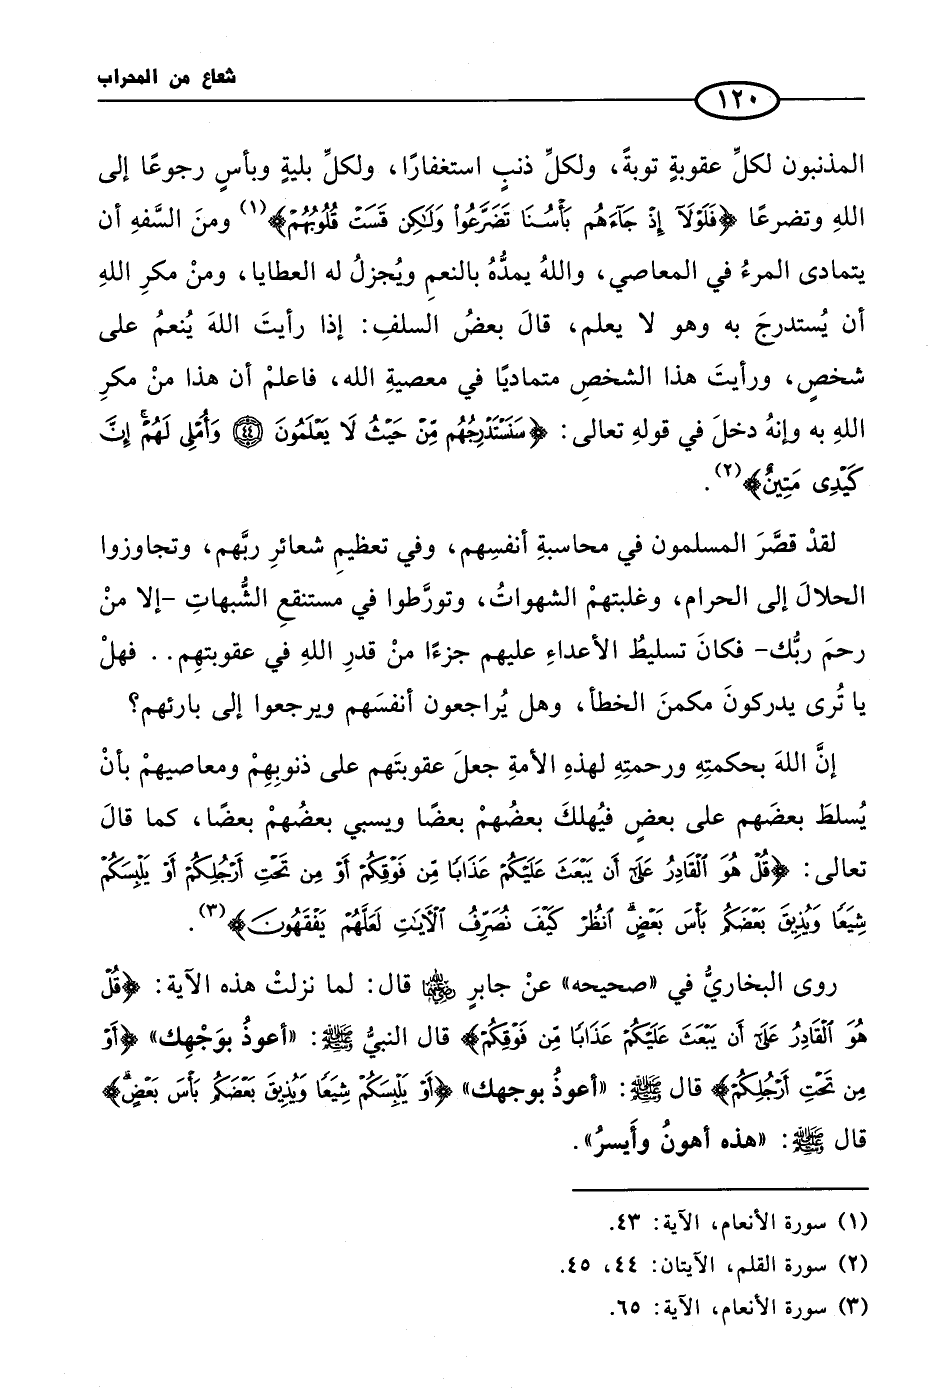 شعاع من المحراب
١٢٠
المذنبون لكلِّ عقوبةٍ توبةً، ولكلِّ ذنبٍ استغفارًا، ولكلِّ بليةٍ وبأسٍ رجوعًا إلى
اللهِ وتضرعًا ﴿فَلَوْلَآ إِذْ جَآءَهُم بَأْسُنَا تَضَرَّعُوا۟ وَلَٰكِن قَسَتْ قُلُوبُهُمْ﴾(١) ومنَ السَّفهِ أن
يتمادى المرءُ في المعاصي، واللهُ يمدُّهُ بالنعمِ ويُجزلُ له العطايا، ومنْ مكرِ اللهِ
أن يُستدرجَ به وهو لا يعلم، قالَ بعضُ السلفِ: إذا رأيتَ اللهَ يُنعمُ على
شخصٍ، ورأيتَ هذا الشخصِ متماديًا في معصيةِ الله، فاعلمْ أن هذا منْ مكرِ
اللهِ به وإنهُ دخلَ في قولهِ تعالى: ﴿سَنَسْتَدْرِجُهُم مِّنْ حَيْثُ لَا يَعْلَمُونَ ٤٤ وَأُمْلِى لَهُمْ ۚ إِنَّ
كَيْدِى مَتِينٌ﴾(٢).
لقدْ قصَّرَ المسلمون في محاسبةِ أنفسِهم، وفي تعظيمِ شعائرِ ربَّهم، وتجاوزوا
الحلالَ إلى الحرام، وغلبتهمْ الشهواتُ، وتورَّطوا في مستنقعِ الشُّبهاتِ -إلا منْ
رحمَ ربُّك- فكانَ تسليطُ الأعداءِ عليهم جزءًا منْ قدرِ اللهِ في عقوبتهِم.. فهلْ
يا تُرى يدركونَ مكمنَ الخطأ، وهل يُراجعون أنفسَهم ويرجعوا إلى بارئهم؟
إنَّ اللهَ بحكمتهِ ورحمتهِ لهذهِ الأمةِ جعلَ عقوبتَهم على ذنوبِهمْ ومعاصيهمْ بأنْ
يُسلطَ بعضَهم على بعضٍ فيُهلكَ بعضُهمْ بعضًا ويسبي بعضُهمْ بعضًا، كما قالَ
تعالى: ﴿قُلْ هُوَ ٱلْقَادِرُ عَلَىٰٓ أَن يَبْعَثَ عَلَيْكُمْ عَذَابًا مِّن فَوْقِكُمْ أَوْ مِن تَحْتِ أَرْجُلِكُمْ أَوْ يَلْبِسَكُمْ
شِيَعًا وَيُذِيقَ بَعْضَكُم بَأْسَ بَعْضٍ ۗ ٱنظُرْ كَيْفَ نُصَرِّفُ ٱلْءَايَٰتِ لَعَلَّهُمْ يَفْقَهُونَ﴾(٣).
روى البخاريُّ في «صحيحه» عنْ جابرٍ رضي الله عنه قال: لما نزلتْ هذه الآية: ﴿قُلْ
هُوَ ٱلْقَادِرُ عَلَىٰٓ أَن يَبْعَثَ عَلَيْكُمْ عَذَابًا مِّن فَوْقِكُمْ﴾ قال النبيُّ ﷺ: «أعوذُ بوَجْهِك» ﴿أَوْ
مِن تَحْتِ أَرْجُلِكُمْ﴾ قال ﷺ: «أعوذُ بوجهك» ﴿أَوْ يَلْبِسَكُمْ شِيَعًا وَيُذِيقَ بَعْضَكُم بَأْسَ بَعْضٍ ۗ﴾
قال ﷺ: «هذه أهونُ وأَيسرُ».
(١) سورة الأنعام، الآية: ٤٣.
(٢) سورة القلم، الآيتان: ٤٤، ٤٥.
(٣) سورة الأنعام، الآية: ٦٥.